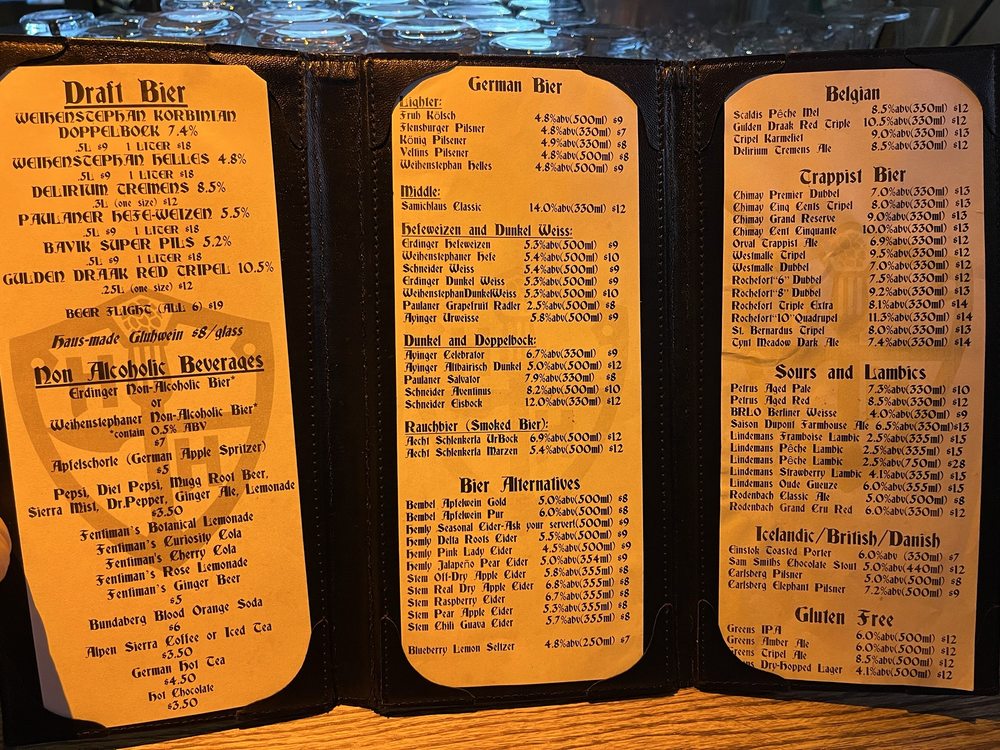 Draft Bier
WEIHENSTEPHAN KORBINIAN
DOPPELBOCK 7.4%
.5L $9 1 LITER $18
WEIHENSTEPHAN HELLES 4.8%
.5L $9 1 LITER $18
DELIRIUM TREMENS 8.5%
.3L (one size) $12
PAULANER HEFE-WEIZEN 5.5%
.5L $9 1 LITER $18
BAVIK SUPER PILS 5.2%
.5L $9 1 LITER $18
GULDEN DRAAK RED TRIPEL 10.5%
.25L (one size) $12
BEER FLIGHT (ALL 6) $19
Haus-made Gluhwein $8/glass
Non Alcoholic Beverages
Erdinger Non-Alcoholic Bier*
or
Weihenstephaner Non-Alcoholic Bier*
*contain 0.5% ABV
$7
Apfelschorle (German Apple Spritzer)
$5
Pepsi, Diet Pepsi, Mugg Root Beer,
Sierra Mist, Dr.Pepper, Ginger Ale, Lemonade
$3.50
Fentiman's Botanical Lemonade
Fentiman's Curiosity Cola
Fentiman's Cherry Cola
Fentiman's Rose Lemonade
Fentiman's Ginger Beer
$5
Bundaberg Blood Orange Soda
$6
Alpen Sierra Coffee or Iced Tea
$3.50
German Hot Tea
$4.50
Hot Chocolate
$3.50
German Bier
Lighter:
Fruh Kölsch 4.8%abv(500ml) $9
Flensburger Pilsner 4.8%abv(330ml) $7
König Pilsner 4.9%abv(330ml) $8
Veltins Pilsener 4.8%abv(500ml) $8
Weihenstephan helles 4.8%abv(500ml) $9
Middle:
Samichlaus Classic 14.0%abv(330ml) $12
Hefeweizen and Dunkel Weiss:
Erdinger Hefeweizen 5.3%abv(500ml) $9
Weihenstephaner Hefe 5.4%abv(500ml) $10
Schneider Weiss 5.4%abv(500ml) $9
Erdinger Dunkel Weiss 5.3%abv(500ml) $9
WeihenstephanDunkelWeiss 5.3%abv(500ml) $10
Paulaner Grapefruit Radler 2.5%abv(500ml) $8
Ayinger Urweisse 5.8%abv(500ml) $9
Dunkel and Doppelbock:
Ayinger Celebrator 6.7%abv(330ml) $9
Ayinger Altbairisch Dunkel 5.0%abv(500ml) $12
Paulaner Salvator 7.9%abv(330ml) $8
Schneider Aventinus 8.2%abv(500ml) $10
Schneider Eisbock 12.0%abv(330ml) $12
Rauchbier (Smoked Bier):
Aecht Schlenkerla UrBock 6.9%abv(500ml) $12
Aecht Schlenkerla Marzen 5.4%abv(500ml) $12
Bier Alternatives
Bembel Apfelwein Gold 5.0%abv(500ml) $8
Bembel Apfelwein Pur 6.0%abv(500ml) $8
Hemly Seasonal Cider-Ask your server(500ml) $9
Hemly Delta Roots Cider 5.5%abv(500ml) $9
Hemly Pink Lady Cider 4.5%abv(500ml) $9
Hemly Jalapeño Pear Cider 5.0%abv(354ml) $9
Stem Off-Dry Apple Cider 5.8%abv(355ml) $8
Stem Real Dry Apple Cider 6.8%abv(355ml) $8
Stem Raspberry Cider 6.7%abv(355ml) $8
Stem Pear Apple Cider 5.3%abv(355ml) $8
Stem Chili Guava Cider 5.7%abv(355ml) $8
Blueberry Lemon Seltzer 4.8%abv(250ml) $7
Belgian
Scaldis Pêche Mel 8.5%abv(350ml) $12
Gulden Draak Red Triple 10.5%abv(330ml) $12
Tripel Karmeliet 9.0%abv(330ml) $13
Delirium Tremens Ale 8.5%abv(330ml) $12
Trappist Bier
Chimay Premier Dubbel 7.0%abv(330ml) $13
Chimay Cinq Cents Tripel 8.0%abv(330ml) $13
Chimay Grand Reserve 9.0%abv(330ml) $13
Chimay Cent Cinquante 10.0%abv(330ml) $13
Orval Trappist Ale 6.9%abv(330ml) $12
Westmalle Tripel 9.5%abv(330ml) $12
Westmalle Dubbel 7.0%abv(330ml) $12
Rochefort"6" Dubbel 7.5%abv(330ml) $12
Rochefort"8" Dubbel 9.2%abv(330ml) $13
Rochefort Triple Extra 8.1%abv(330ml) $14
Rochefort"10"Quadrupel 11.3%abv(330ml) $14
St. Bernardus Tripel 8.0%abv(330ml) $13
Tynt Meadow Dark Ale 7.4%abv(330ml) $14
Sours and Lambics
Petrus Aged Pale 7.3%abv(330ml) $10
Petrus Aged Red 8.5%abv(330ml) $12
BRLO Berliner Weisse 4.0%abv(330ml) $9
Saison Dupont Farmhouse Ale 6.5%abv(330ml) $13
Lindemans Framboise Lambic 2.5%abv(335ml) $15
Lindemans Pêche Lambic 2.5%abv(355ml) $15
Lindemans Pêche Lambic 2.5%abv(750ml) $28
Lindemans Strawberry Lambic 4.1%abv(355ml) $15
Lindemans Oude Gueuze 6.0%abv(355ml) $15
Rodenbach Classic Ale 5.0%abv(500ml) $8
Rodenbach Grand Cru Red 6.0%abv(330ml) $12
Icelandic/British/Danish
Einstok Toasted Porter 6.0%abv (330ml) $7
Sam Smiths Chocolate Stout 5.0%abv(440ml) $12
Carlsberg Pilsner 5.0%abv(500ml) $8
Carlsberg Elephant Pilsner 7.2%abv(500ml) $9
Gluten Free
Greens IPA 6.0%abv(500ml) $12
Greens Amber Ale 6.0%abv(500ml) $12
Greens Tripel Ale 8.5%abv(500ml) $12
Dry-Hopped Lager 4.1%abv(500ml) $12